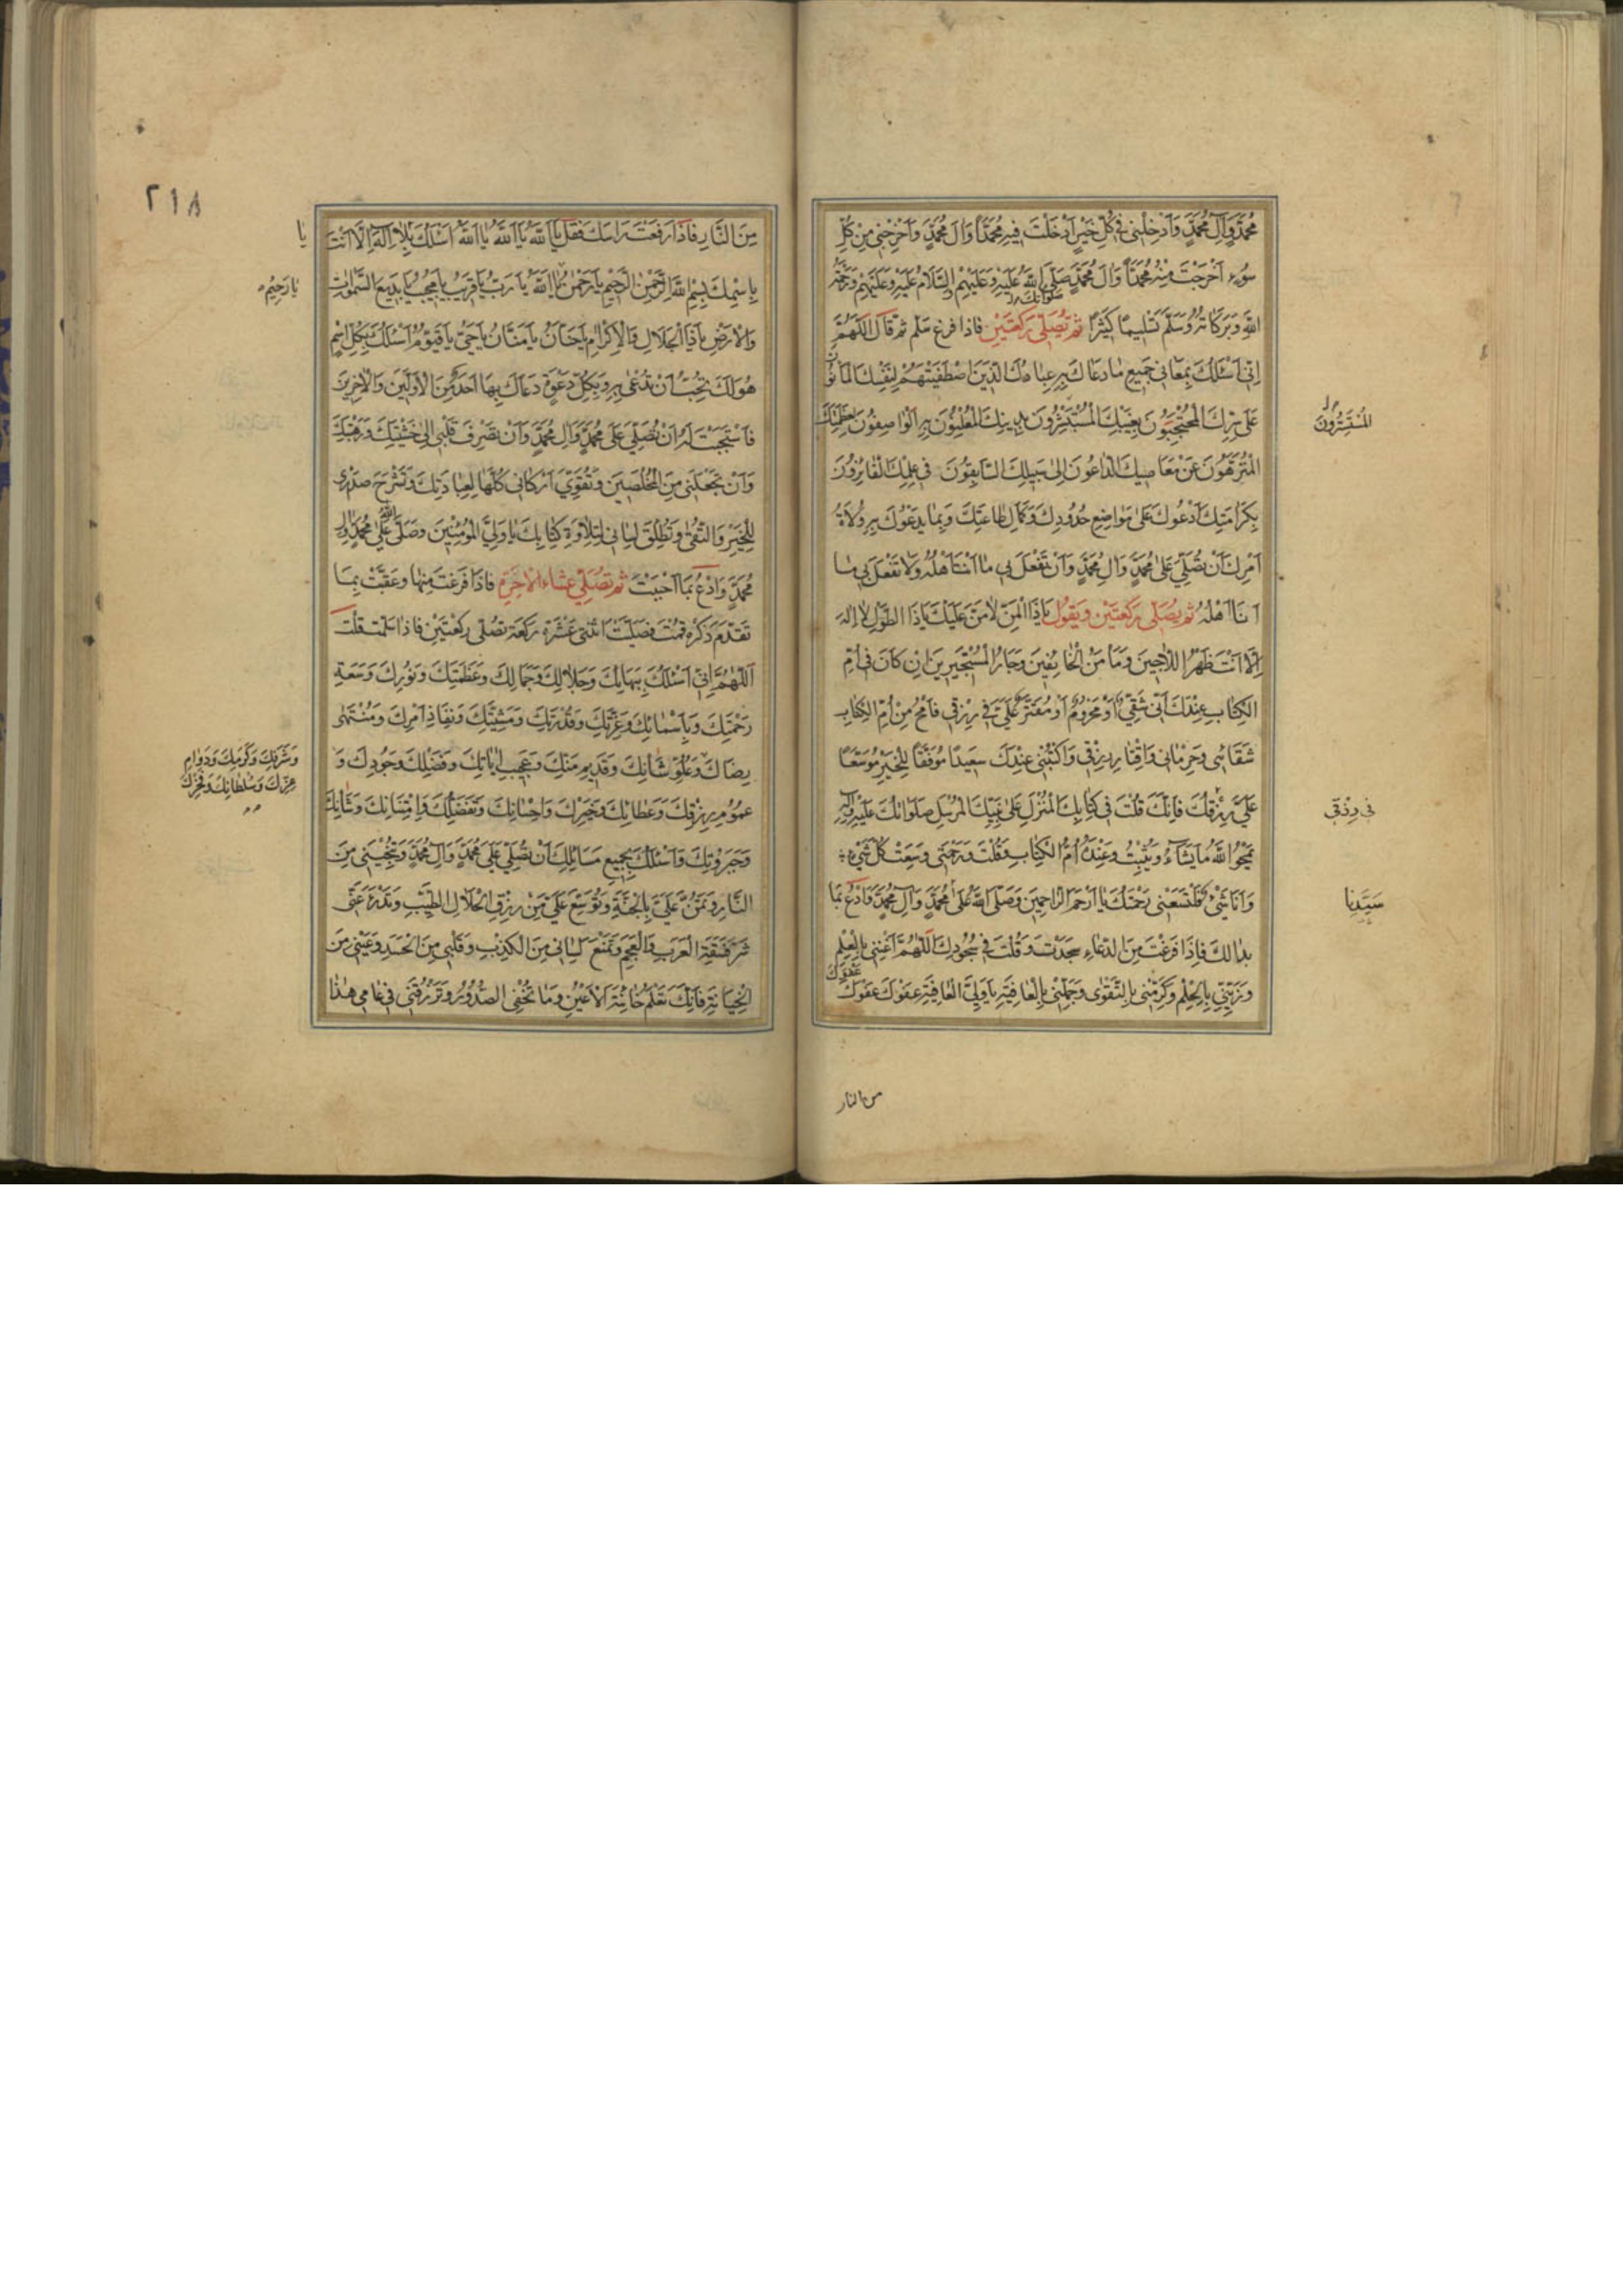 مُحَمَّدٍ وَآلِ مُحَمَّدٍ وَاَدْخِلْنِي فِي كُلِّ خَيْرٍ اَدْخَلْتَ فِيهِ مُحَمَّدًا وَآلَ مُحَمَّدٍ وَاَخْرِجْنِي مِنْ كُلِّ
سُوءٍ اَخْرَجْتَ مِنْهُ مُحَمَّدًا وَآلَ مُحَمَّدٍ صَلَّى اللهُ عَلَيْهِ وَعَلَيْهِمْ وَالسَّلَامُ عَلَيْهِ وَعَلَيْهِمْ وَرَحْمَةُ
صلواتك
اللهِ وَبَرَكَاتُهُ وَسَلَّمَ تَسْلِيمًا كَثِيرًا ثم تُصَلِّى رَكْعَتَيْنِ فاذا فرغ سلم ثم قال اَللّٰهُمَّ
اِنِّي اَسْئَلُكَ بِمَعَانِي جَمِيعِ مَا دَعَاكَ بِهِ عِبَادُكَ الَّذِينَ اصْطَفَيْتَهُمْ لِنَفْسِكَ الْمَأْمُونُونَ
عَلَى سِرِّكَ الْمُحْتَجِبُونَ بِغَيْبِكَ الْمُسْتَسِرُّونَ بِدِينِكَ الْمُعْلِنُونَ بِهِ الْوَاصِفُونَ لِعَظَمَتِكَ
الْمُتَنَزِّهُونَ عَنْ مَعَاصِيكَ الدَّاعُونَ اِلَى سَبِيلِكَ السَّابِقُونَ فِي عِلْمِكَ الْفَائِزُونَ
بِكَرَامَتِكَ اَدْعُوكَ عَلَى مَوَاضِعِ حُدُودِكَ وَكَمَالِ طَاعَتِكَ وَبِمَا يَدْعُوكَ بِهِ وُلَاةُ
اَمْرِكَ اَنْ تُصَلِّيَ عَلَى مُحَمَّدٍ وَآلِ مُحَمَّدٍ وَاَنْ تَفْعَلَ بِي مَا اَنْتَ اَهْلُهُ وَلَا تَفْعَلَ بِي مَا
اَنَا اَهْلُهُ ثم يُصَلِّى رَكْعَتَيْنِ وَيَقُولُ يَا ذَا الْمَنِّ لَا مَنَّ عَلَيْكَ يَا ذَا الطَّوْلِ لَا اِلٰهَ
اِلَّا اَنْتَ ظَهْرُ اللَّاجِينَ وَمَاْمَنُ الْخَائِفِينَ وَجَارُ الْمُسْتَجِيرِينَ اِنْ كَانَ فِي اُمِّ
الْكِتَابِ عِنْدَكَ اَنِّي شَقِيٌّ اَوْ مَحْرُومٌ اَوْ مُقَتَّرٌ عَلَيَّ فِي رِزْقِي فَامْحُ مِنْ اُمِّ الْكِتَابِ
شَقَائِي وَحِرْمَانِي وَاِقْتَارَ رِزْقِي وَاكْتُبْنِي عِنْدَكَ سَعِيدًا مُوَفَّقًا لِلْخَيْرِ مُوَسَّعًا
عَلَيَّ رِزْقُكَ فَاِنَّكَ قُلْتَ فِي كِتَابِكَ الْمُنْزَلِ عَلَى نَبِيِّكَ الْمُرْسَلِ صَلَوَاتُكَ عَلَيْهِ وَآلِهِ
يَمْحُوا اللهُ مَا يَشَاءُ وَيُثْبِتُ وَعِنْدَهُ اُمُّ الْكِتَابِ وَقُلْتَ وَرَحْمَتِي وَسِعَتْ كُلَّ شَيْءٍ
وَاَنَا شَيْءٌ فَلْتَسَعْنِي رَحْمَتُكَ يَا اَرْحَمَ الرَّاحِمِينَ وَصَلَّى اللهُ عَلَى مُحَمَّدٍ وَآلِ مُحَمَّدٍ وَادْعُ بِمَا
بدا لك فَاِذَا فَرَغْتَ مِنَ الدُّعَاءِ سَجَدْتَ وَقُلْتَ فِي سُجُودِكَ اَللّٰهُمَّ اَغْنِنِي بِالْعِلْمِ
وَزَيِّنِّي بِالْحِلْمِ وَكَرِّمْنِي بِالتَّقْوَى وَجَمِّلْنِي بِالْعَافِيَةِ يَا وَلِيَّ الْعَافِيَةِ عَفْوَكَ عَفْوَكَ
عَفْوَكَ
المُسْتَسِرُّونَ
في رِزْقي
سَيِّدِنا
من النار
٢١٨
مِنَ النَّارِ فَاِذَا رَفَعْتَ رَاسَكَ فَقُلْ يَا اَللهُ يَا اَللهُ يَا اَللهُ اَسْئَلُكَ بِلَا اِلٰهَ اِلَّا اَنْتَ
بِاِسْمِكَ بِسْمِ اللهِ الرَّحْمٰنِ الرَّحِيمِ يَا رَحْمٰنُ يَا اَللهُ يَا رَبُّ يَا قَرِيبُ يَا مُجِيبُ يَا بَدِيعَ السَّمٰوَاتِ
وَالْاَرْضِ يَا ذَا الْجَلَالِ وَالْاِكْرَامِ يَا حَنَّانُ يَا مَنَّانُ يَا حَيُّ يَا قَيُّومُ اَسْئَلُكَ بِكُلِّ اسْمٍ
هُوَ لَكَ تُحِبُّ اَنْ تُدْعَى بِهِ وَبِكُلِّ دَعْوَةٍ دَعَاكَ بِهَا اَحَدٌ مِنَ الْاَوَّلِينَ وَالْاٰخِرِينَ
فَاسْتَجَبْتَ لَهُ اَنْ تُصَلِّيَ عَلَى مُحَمَّدٍ وَآلِ مُحَمَّدٍ وَاَنْ تَصْرِفَ قَلْبِي اِلَى خَشْيَتِكَ وَرَهْبَتِكَ
وَاَنْ تَجْعَلَنِي مِنَ الْمُخْلَصِينَ وَتُقَوِّيَ اَرْكَانِي كُلَّهَا لِعِبَادَتِكَ وَتَشْرَحَ صَدْرِي
لِلْخَيْرِ وَالتُّقَى وَتُطْلِقَ لِسَانِي لِتِلَاوَةِ كِتَابِكَ يَا وَلِيَّ الْمُؤْمِنِينَ وَصَلَّى اللهُ عَلَى مُحَمَّدٍ وَآلِ
مُحَمَّدٍ وَادْعُ بِمَا اَحْبَبْتَ ثم تُصَلِّي عشاء الاٰخرةِ فَاِذَا فَرَغْتَ مِنْهَا وَعَقَّبْتَ بِمَا
تَقَدَّمَ ذِكْرُهُ قُمْتَ فَصَلَّيْتَ اثْنَتَي عَشَرَةَ رَكْعَةً تصلى رَكْعَتَيْنِ فَاِذَا سَلَّمْتَ قُلْتَ
اَللّٰهُمَّ اِنِّي اَسْئَلُكَ بِبَهَائِكَ وَجَلَالِكَ وَجَمَالِكَ وَعَظَمَتِكَ وَنُورِكَ وَسَعَةِ
رَحْمَتِكَ وَبِاَسْمَائِكَ وَعِزَّتِكَ وَقُدْرَتِكَ وَمَشِيَّتِكَ وَنَفَاذِ اَمْرِكَ وَمُنْتَهَى
رِضَاكَ وَعُلُوِّ شَأْنِكَ وَقَدِيمِ مَنِّكَ وَعَجِيبِ اٰيَاتِكَ وَفَضْلِكَ وَجُودِكَ وَ
عُمُومِ رِزْقِكَ وَعَطَائِكَ وَخَيْرِكَ وَاِحْسَانِكَ وَتَفَضُّلِكَ وَاِمْتِنَانِكَ وَشَأْنِكَ
وَجَبَرُوتِكَ وَاَسْئَلُكَ بِجَمِيعِ مَسَائِلِكَ اَنْ تُصَلِّيَ عَلَى مُحَمَّدٍ وَآلِ مُحَمَّدٍ وَتُنْجِيَنِي مِنَ
النَّارِ وَتَمُنَّ عَلَيَّ بِالْجَنَّةِ وَتُوَسِّعَ عَلَيَّ مِنْ رِزْقِ الْحَلَالِ الطَّيِّبِ وَتَدْرَءَ عَنِّي
شَرَّ فَسَقَةِ الْعَرَبِ وَالْعَجَمِ وَتَمْنَعَ لِسَانِي مِنَ الْكَذِبِ وَقَلْبِي مِنَ الْحَسَدِ وَعَيْنِي مِنَ
الْخِيَانَةِ فَاِنَّكَ تَعْلَمُ خَائِنَةَ الْاَعْيُنِ وَمَا تُخْفِي الصُّدُورُ وَتَرْزُقَنِي فِي عَامِي هٰذَا
يا
يا رَحِيمُ
وَشَرَفِكَ وَكَرَمِكَ وَدَوَامِ
عِزِّكَ وَسُلْطَانِكَ وَفَخْرِكَ